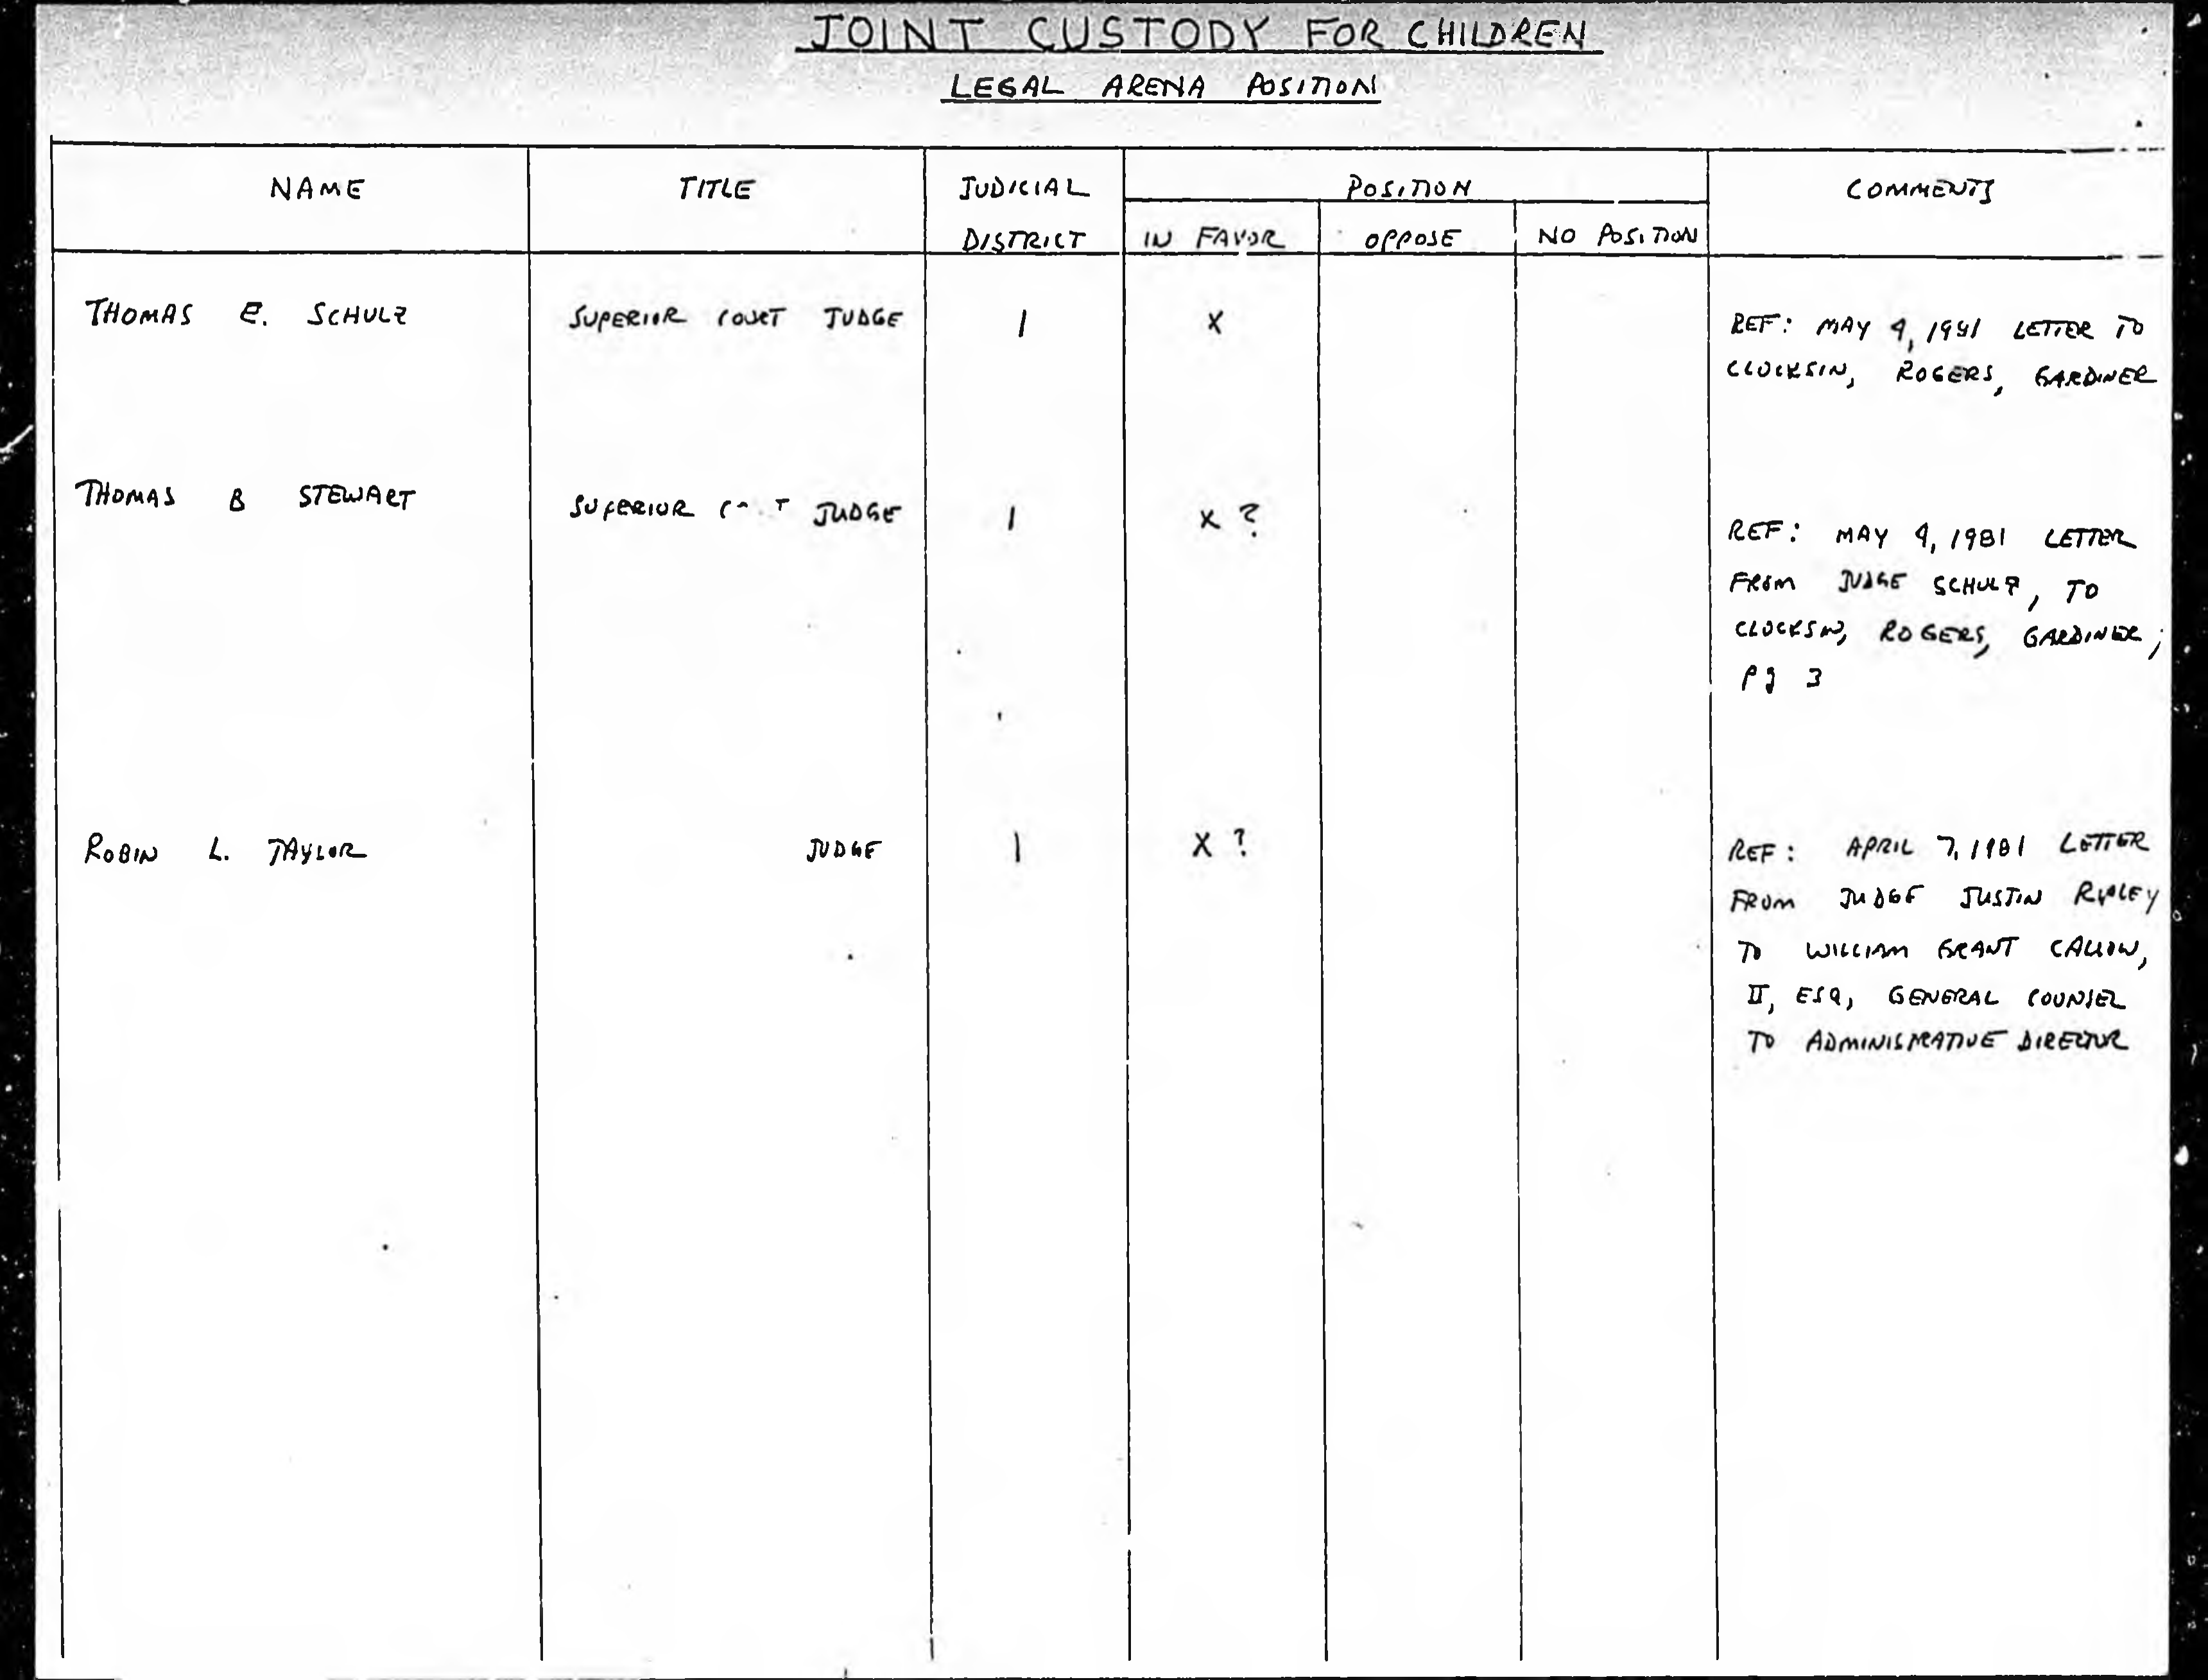 JOINT CUSTODY FOR CHILDREN
LEGAL ARENA POSITION
NAME TITLE JUDICIAL DISTRICT POSITION COMMENTS
IN FAVOR OPPOSE NO POSITION
THOMAS E. SCHULZ SUPERIOR COURT JUDGE 1 X
REF: MAY 4, 1981 LETTER TO
CLOCKSIN, ROGERS, GARDINER
THOMAS B STEWART SUPERIOR JUDGE 1 X ?
REF: MAY 4, 1981 LETTER
FROM JUDGE SCHULZ, TO
CLOCKSIN, ROGERS, GARDINER;
pg 3
ROBIN L. TAYLOR JUDGE 1 X ?
REF: APRIL 7, 1981 LETTER
FROM JUDGE JUSTIN RIPLEY
TO WILLIAM GRANT CALLOW,
II, ESQ, GENERAL COUNSEL
TO ADMINISTRATIVE DIRECTOR